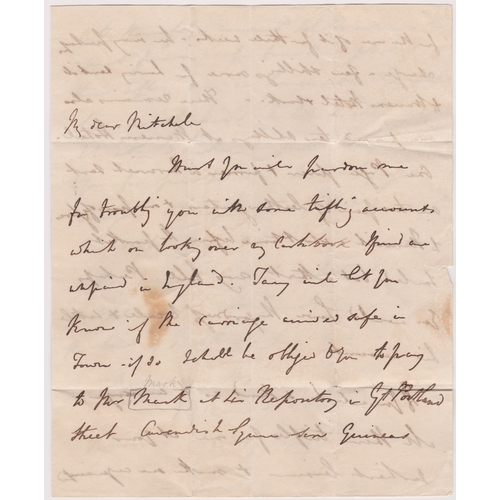 My dear Mitchell
I must you will pardon me
for troubling you with some trifling accounts
which on looking over my Cashbook I find are
unpaid in England. Tany will let you
Know if the carriage arrived safe in
Town - if so I shall be obliged to you to pay
Marks
to Mr Mark at his Repository in Gt Portland
Street Cavendish Square Guineas